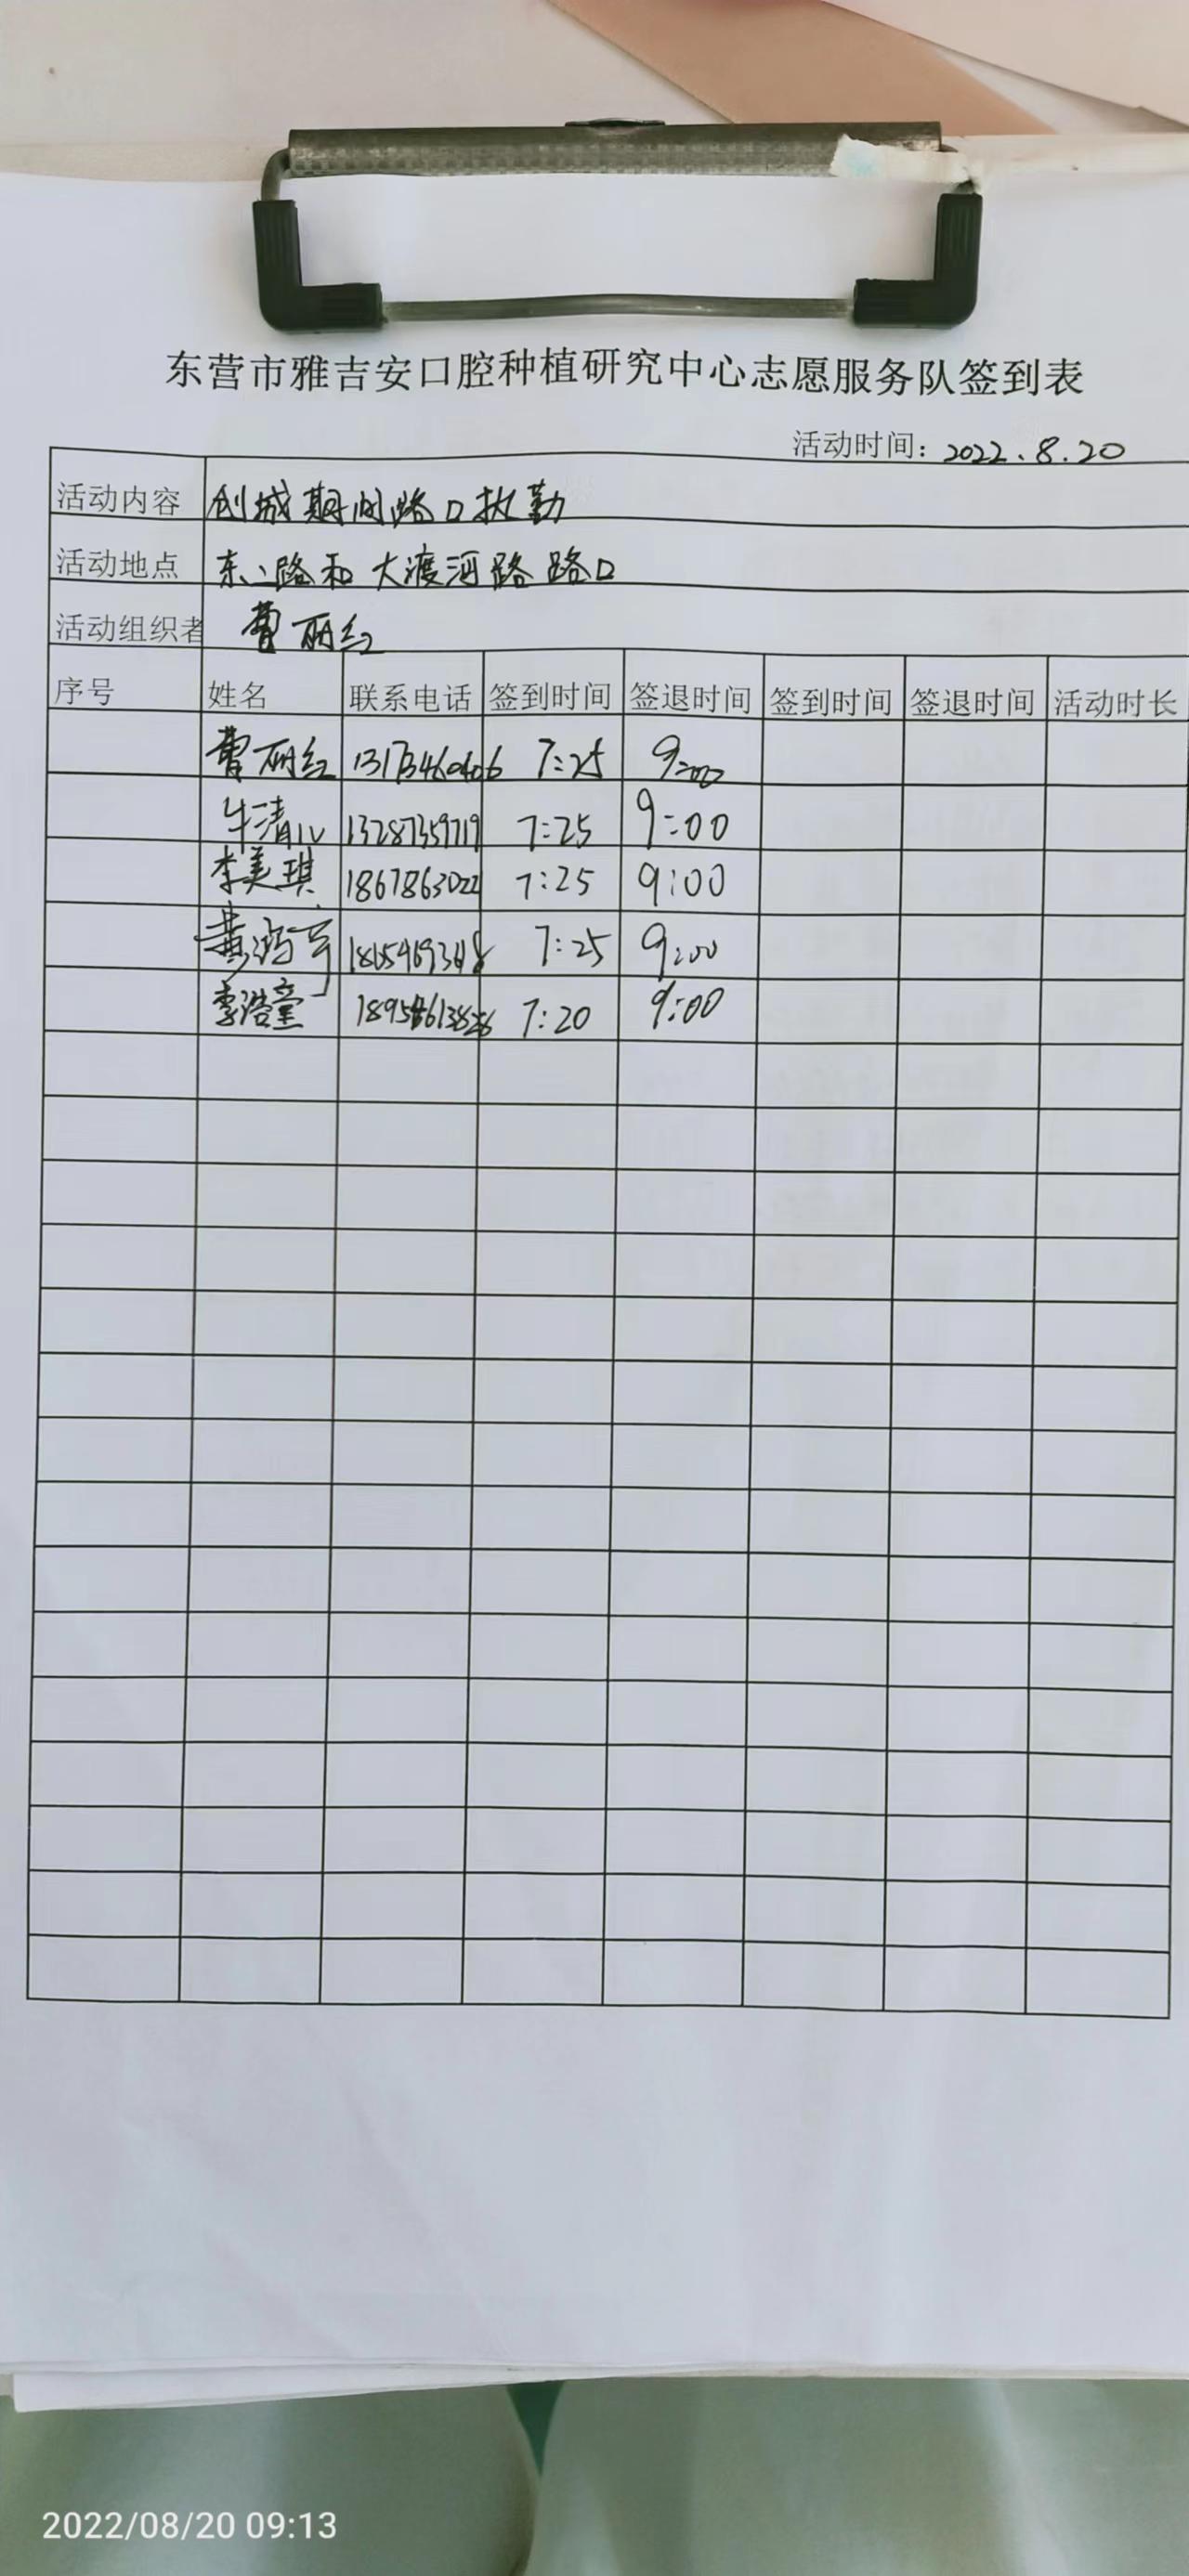 东营市雅吉安口腔种植研究中心志愿服务队签到表
活动时间：2022.8.20
活动内容 创城期间路口执勤
活动地点 东二路和大渡河路路口
活动组织者 曹丽红
序号 姓名 联系电话 签到时间 签退时间 签到时间 签退时间 活动时长
曹丽红 7:25 9:00
牛清 13287359719 7:25 9:00
李美琪 7:25 9:00
黄 7:25 9:00
李浩童 7:20 9:00
2022/08/20 09:13